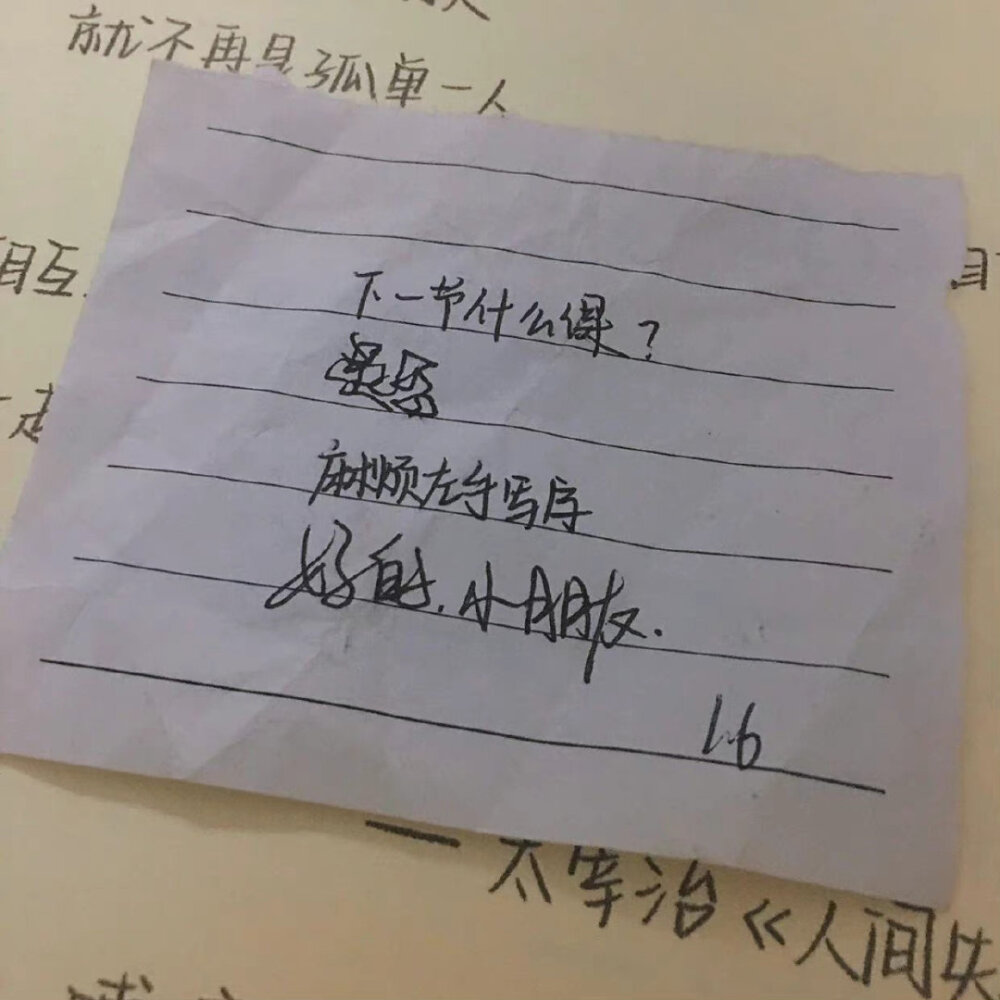 就不再是孤单一人
相互
下一节什么课?
麻烦左手写字
好的.小朋友.
1.6
——太宰治《人间失